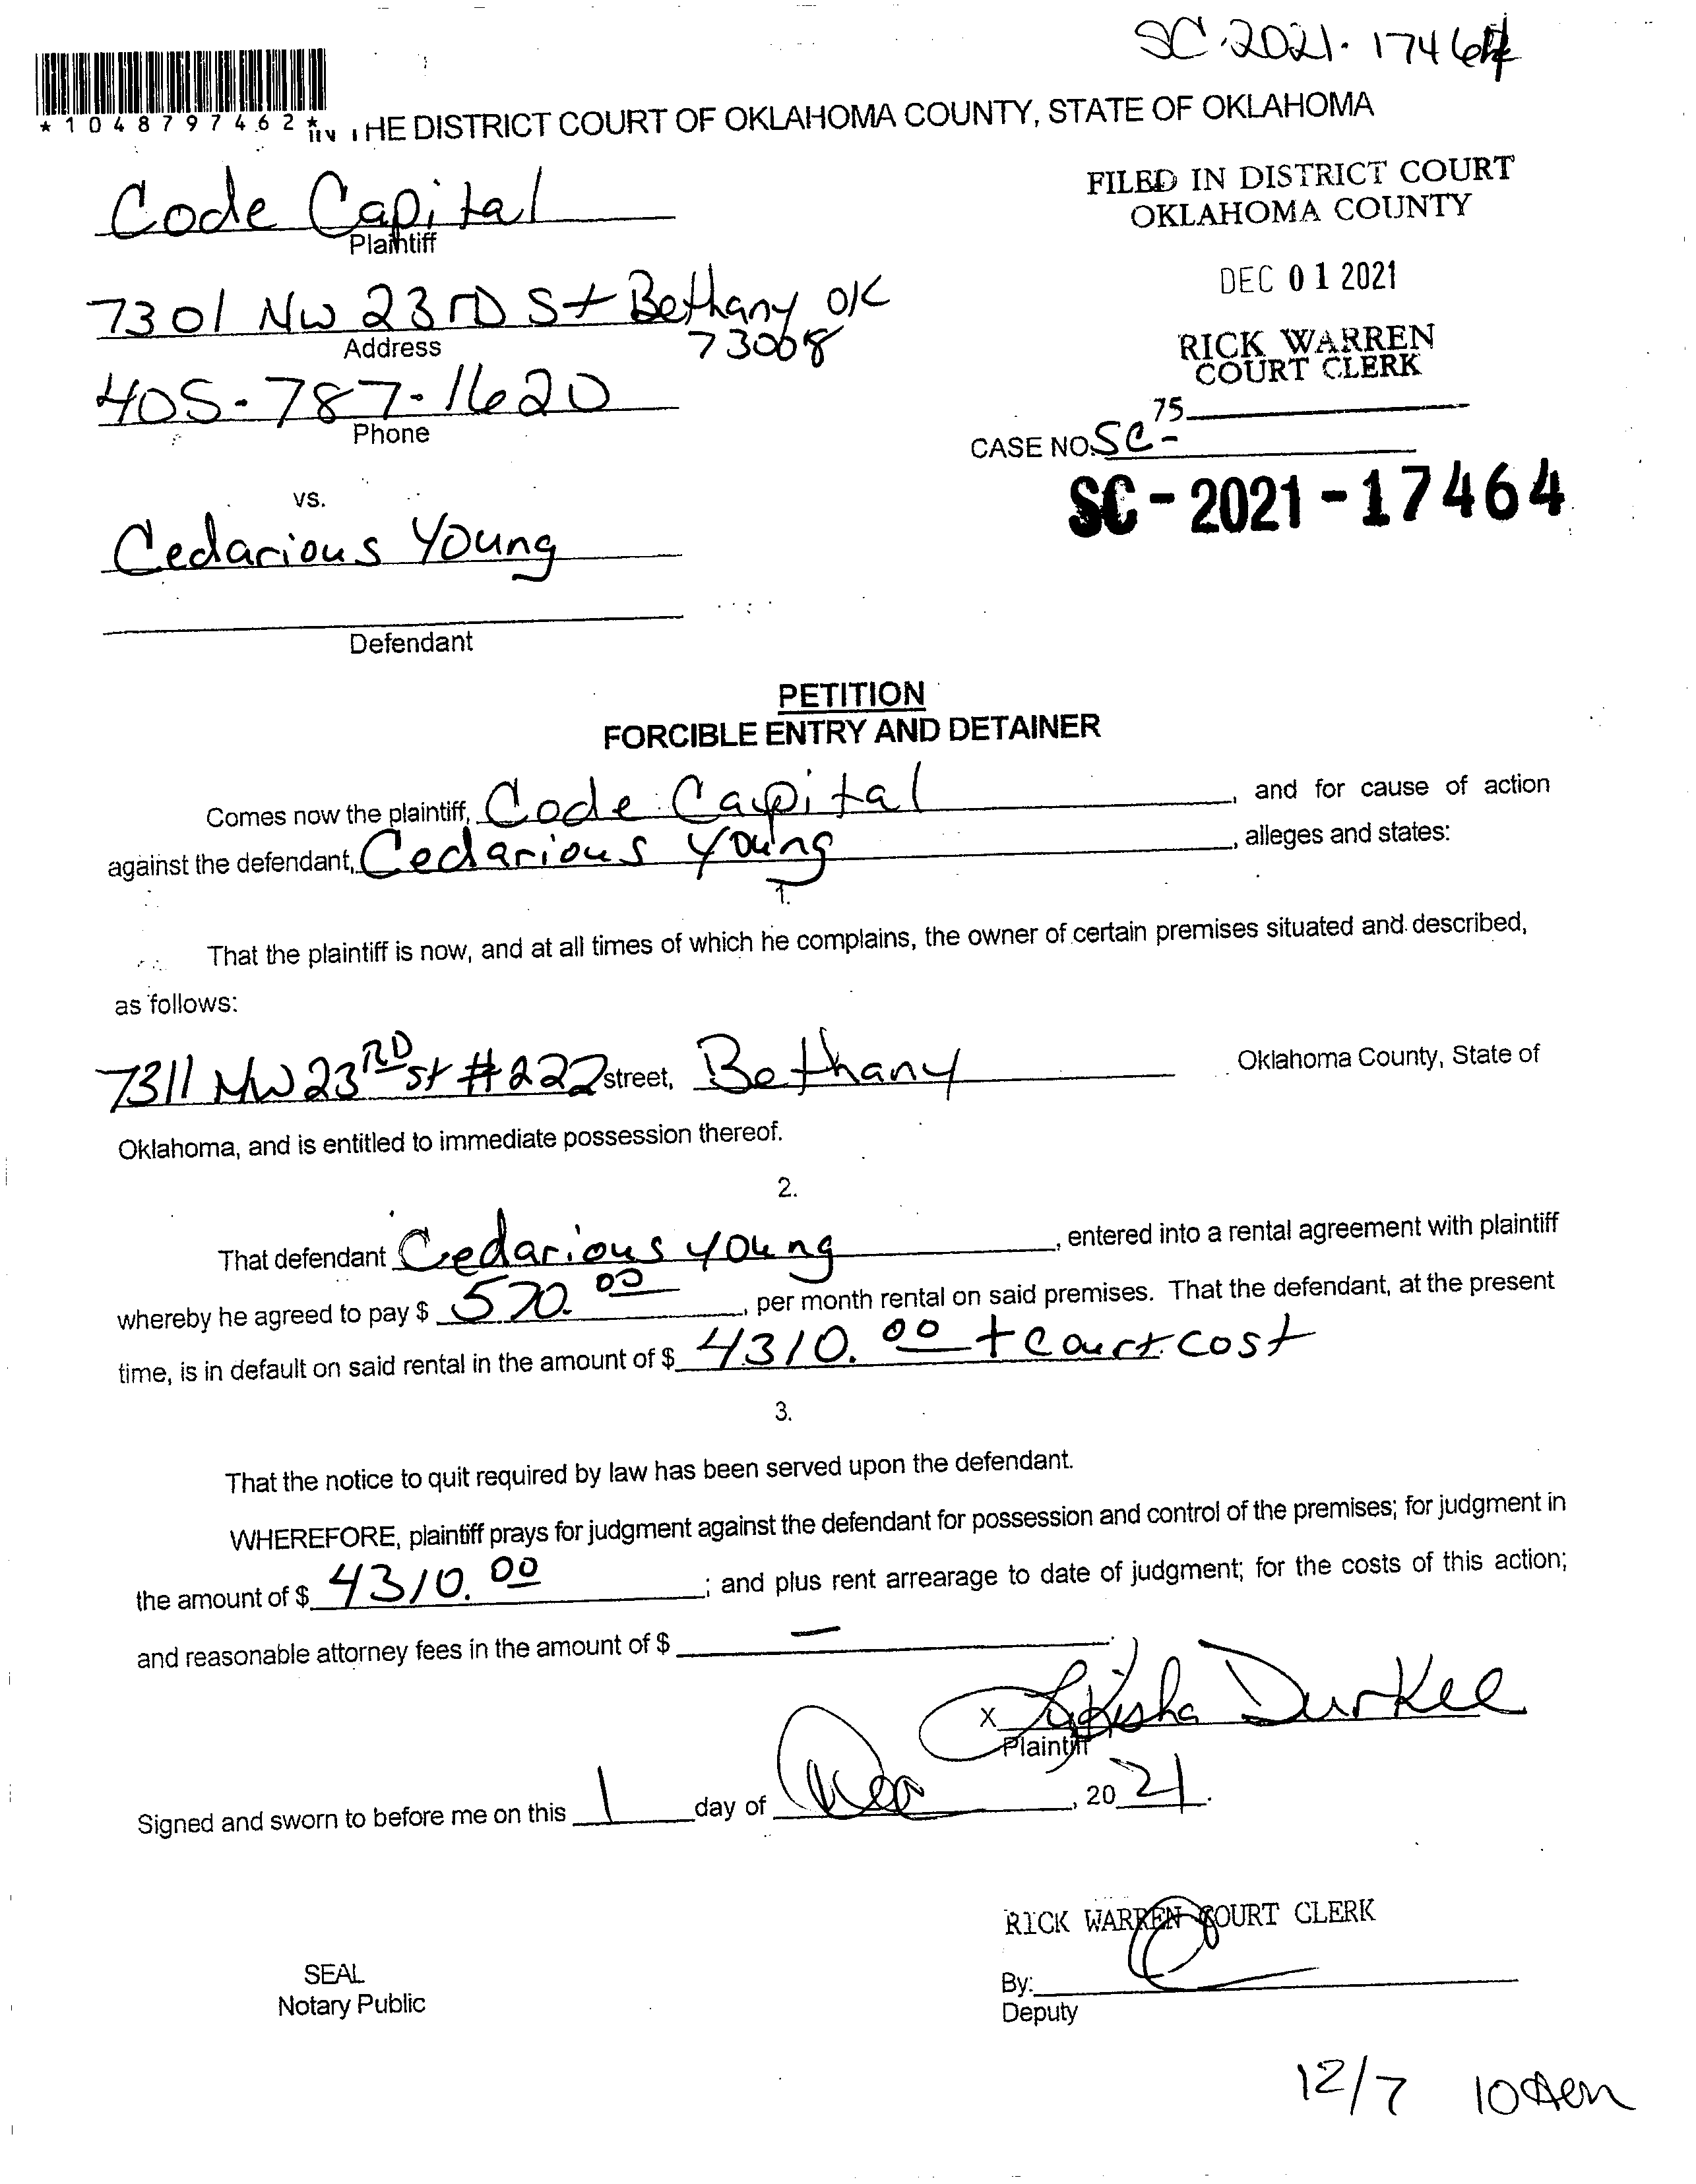 SC-2021-17464
*1048797462*
IN THE DISTRICT COURT OF OKLAHOMA COUNTY, STATE OF OKLAHOMA
Code Capital
Plaintiff
FILED IN DISTRICT COURT
OKLAHOMA COUNTY
7301 NW 23RD St Bethany OK
73008
Address
DEC 01 2021
405-787-1620
Phone
RICK WARREN
COURT CLERK
75
CASE NO. SC-
SC-2021-17464
vs.
Cedarious Young
Defendant
PETITION
FORCIBLE ENTRY AND DETAINER
Comes now the plaintiff, Code Capital, and for cause of action
against the defendant, Cedarious Young, alleges and states:
1.
That the plaintiff is now, and at all times of which he complains, the owner of certain premises situated and described,
as follows:
7311 NW 23RD St #222 street, Bethany Oklahoma County, State of
Oklahoma, and is entitled to immediate possession thereof.
2.
That defendant Cedarious Young, entered into a rental agreement with plaintiff
whereby he agreed to pay $ 570.00, per month rental on said premises. That the defendant, at the present
time, is in default on said rental in the amount of $ 4310.00 + Court cost
3.
That the notice to quit required by law has been served upon the defendant.
WHEREFORE, plaintiff prays for judgment against the defendant for possession and control of the premises; for judgment in
the amount of $ 4310.00; and plus rent arrearage to date of judgment; for the costs of this action;
and reasonable attorney fees in the amount of $ —.
X Durkee
Plaintiff
Signed and sworn to before me on this 1 day of Dec, 2021.
RICK WARREN COURT CLERK
SEAL
Notary Public
By:
Deputy
12/7 10am